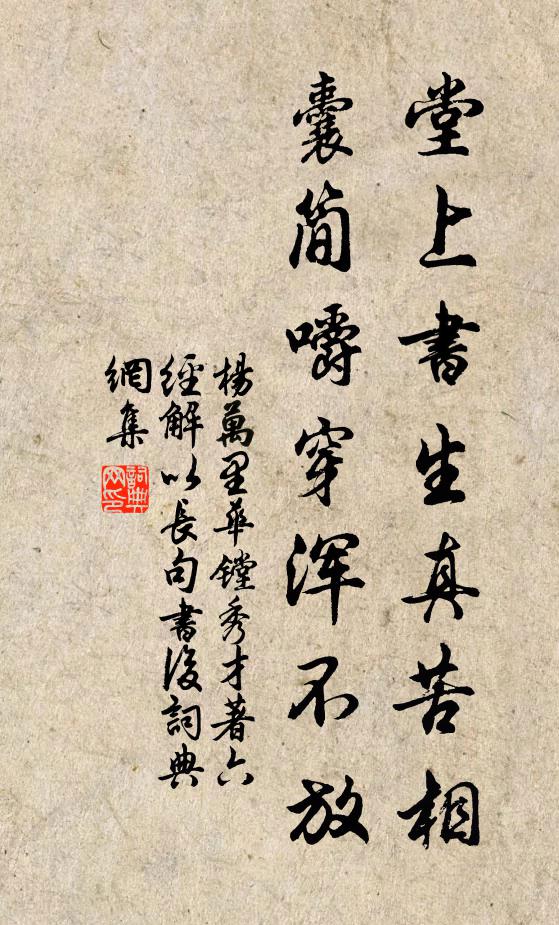 堂上書生真苦相
囊简嚼穿浑不放
楊萬里華鏜秀才著六
經解以長句書後詞典
網集
詞典
网印